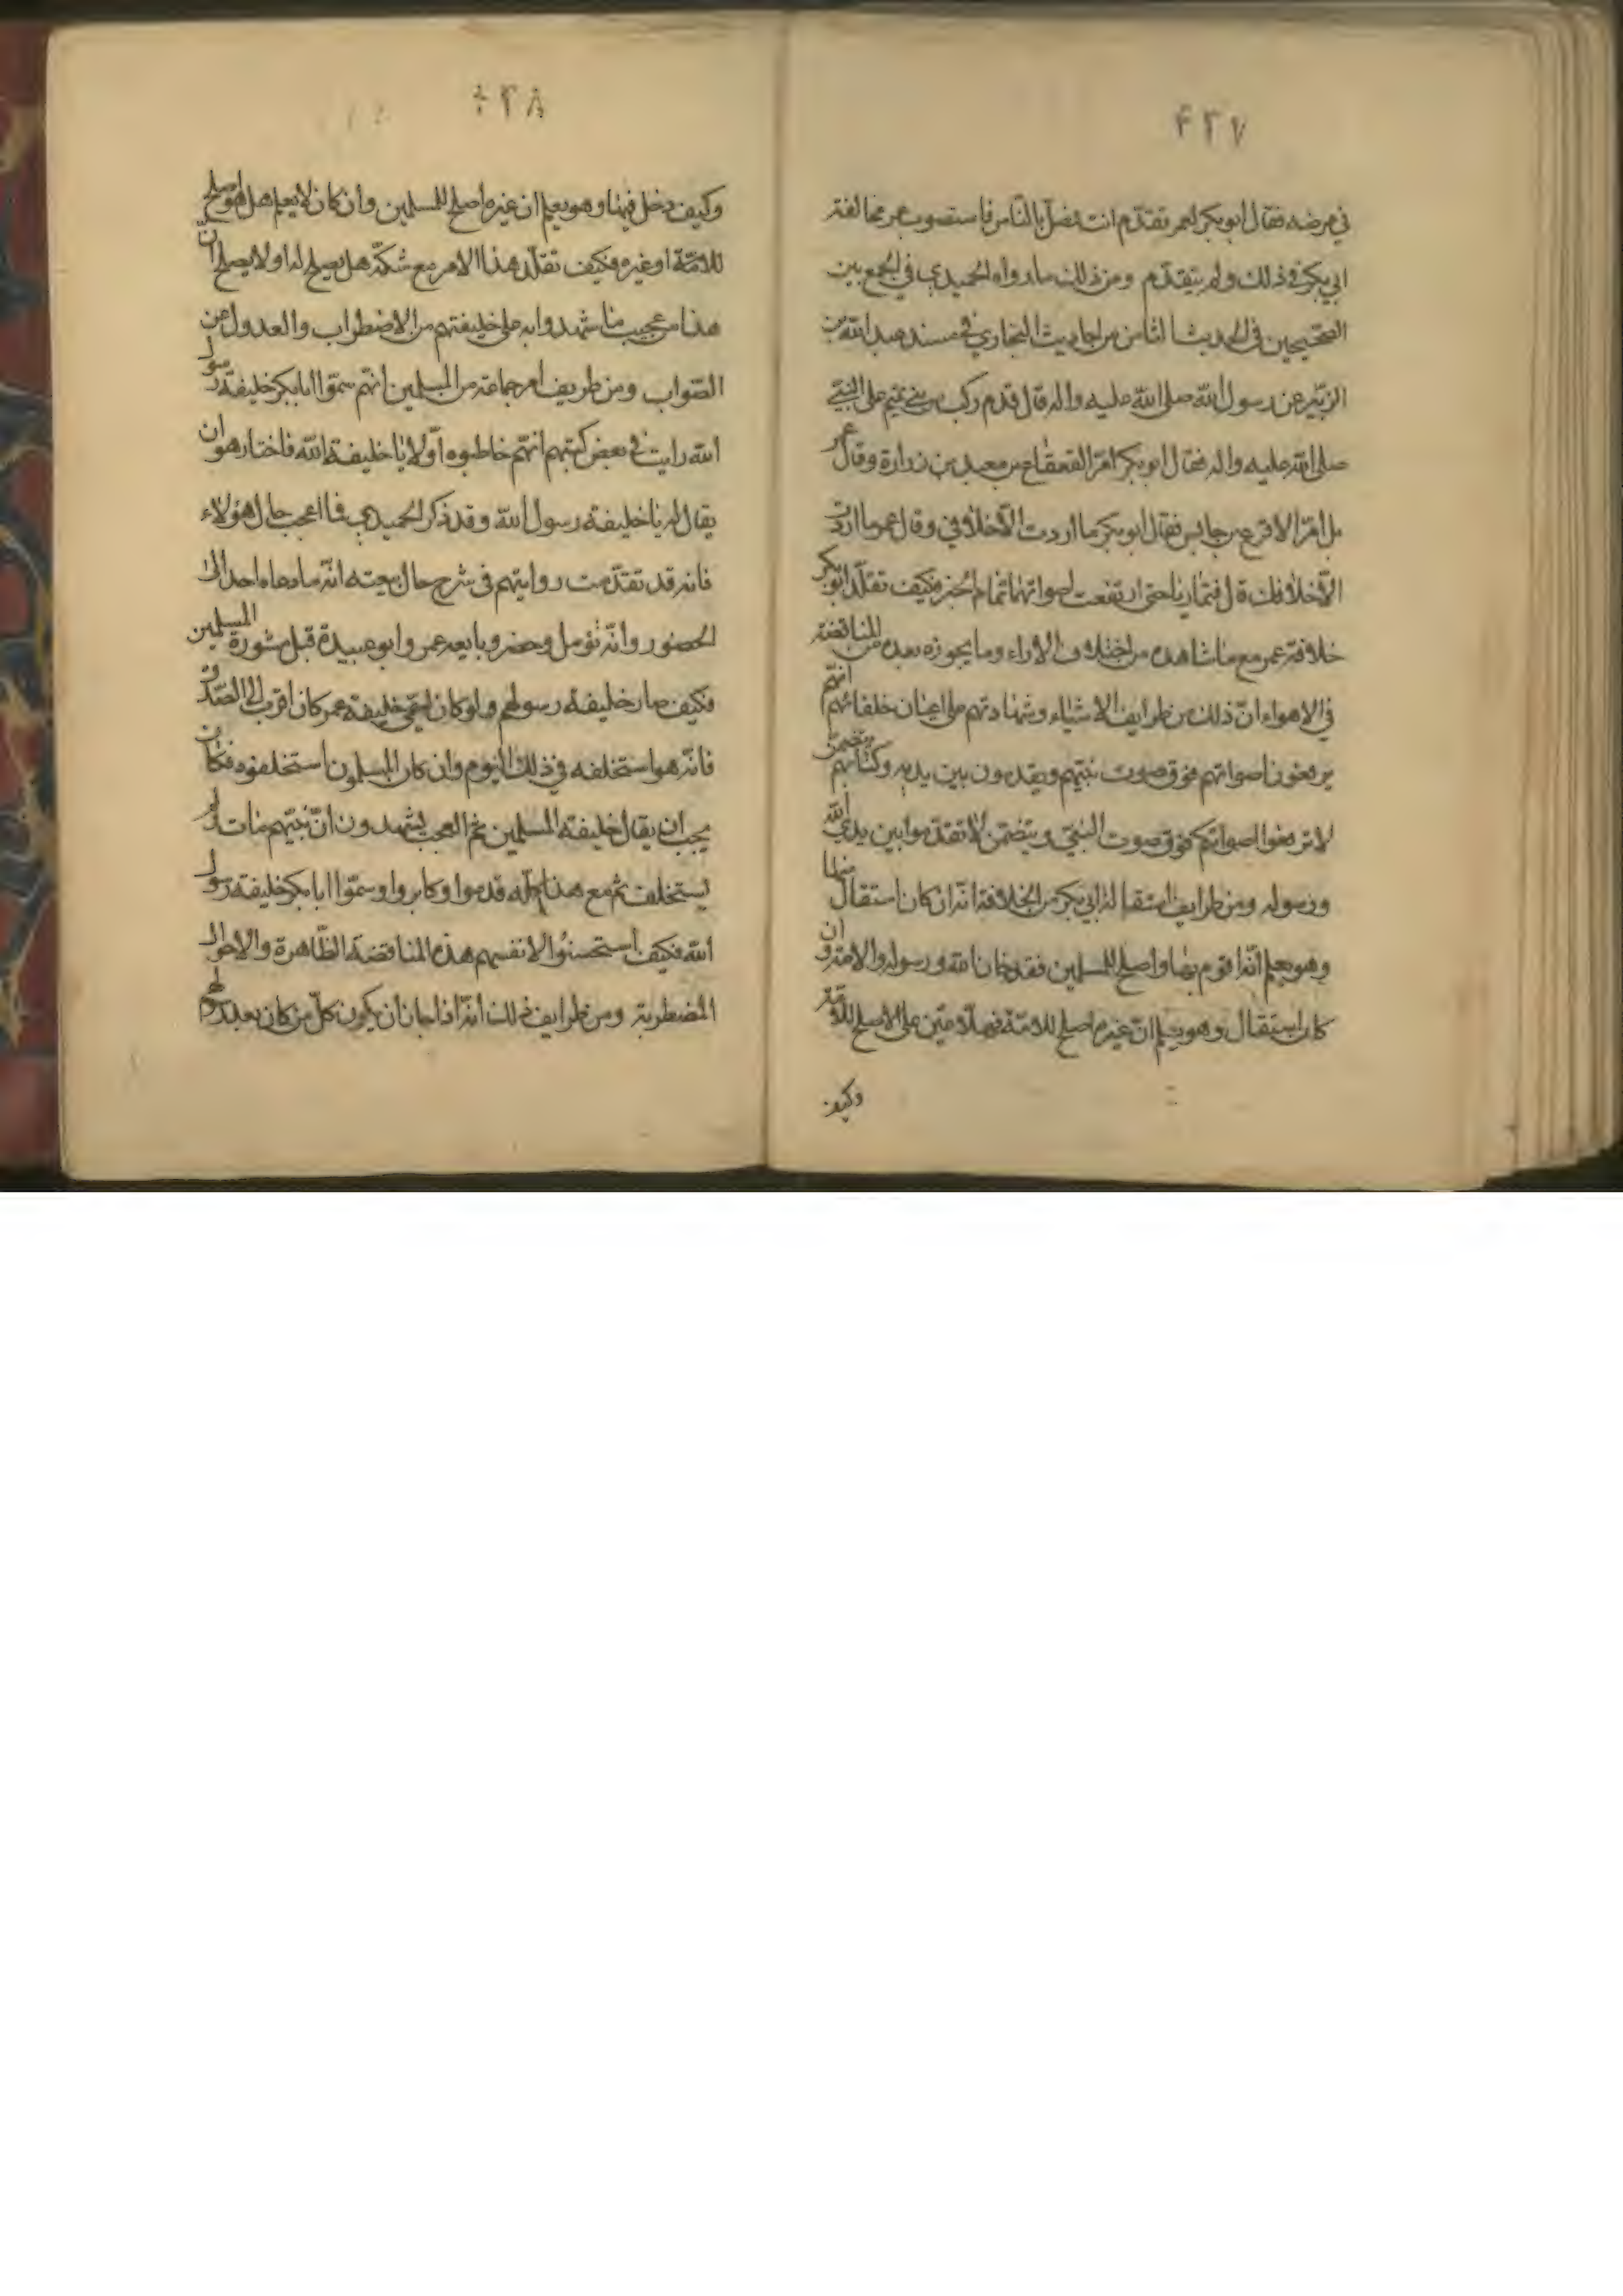 ۴۲۷
في مرضه فقال ابو بكر لعمر تقدّم انت فصلّ بالنّاس فاستصوب عمر مخالفة
ابي بكر في ذلك ولم يتقدّم ومن ذلك ما رواه الحميدي في الجمع بين
الصّحيحين في الحديث الثامن من احاديث البخاري في مسند عبد الله بن
الزبير عن رسول الله صلى الله عليه واله قال قدم ركب من بني تميم على النبي
صلى الله عليه واله فقال ابو بكر امّر القعقاع بن معبد بن زرارة وقال عمر
بل امّر الاقرع بن حابس فقال ابو بكر ما اردت الّا خلافي وقال عمر ما اردت
الّا خلافك قال فتماريا حتى ارتفعت اصواتهما تمام الخبر فكيف تقلّد ابو بكر
خلافة عمر مع ما شاهده من اختلاف الاراء وما يجوزه بعده من المناقضة
في الاهواء انّ ذلك من طرايف الاشياء وشهادتهم على اعيان خلفائهم انهم
يرفعون اصواتهم فوق صوت نبيّهم ويقدمون بين يديه وكتابهم يتضمن
لا ترفعوا اصواتكم فوق صوت النبيّ ويتضمن لا تقدّموا بين يدي الله
ورسوله ومن طرايف استقالة ابي بكر من الخلافة انّه ان كان استقال منها
وهو يعلم انّه اقوم بها واصلح للمسلمين فقد خان الله ورسوله والامة وان
كان استقال وهو يعلم انّ غيره اصلح للامّة فهلّا عيّن على الاصلح للامّة
وكيف
۴۲۸
وكيف دخل فيها وهو يعلم ان غيره اصلح للمسلمين وان كان لا يعلم هل هو اصلح
للامّة او غيره فكيف تقلّد هذا الامر مع شكّه هل يصلح له او لا يصلح انّ
هذا من عجيب ما شهدوا به على خليفتهم من الاضطراب والعدول عن
الصّواب ومن طريف امر جماعة من المسلمين انهم سمّوا ابا بكر خليفة رسول
الله رايت في بعض كتبهم انهم خاطبوه اوّلا يا خليفة الله فاختار هو ان
يقال له يا خليفة رسول الله وقد ذكر الحميدي فما اعجب حال هؤلاء
فانه قد تقدّمت روايتهم في شرح حال بيعته انّه ما دعاه احد الى
الحضور وانّه توصل وحضر وبايعه عمر وابو عبيدة قبل مشورة المسلمين
فكيف صار خليفة رسولهم ولو كان سمّي خليفة عمر كان اقرب الى الصّدق
فانّه هو استخلفه في ذلك اليوم وان كان المسلمون استخلفوه فكان
يجب ان يقال خليفة المسلمين ثم العجب يشهدون انّ نبيّهم مات ولم
يستخلف ثم مع هذا كله قدموا وكابروا وسمّوا ابا بكر خليفة رسول
الله فكيف استحسنوا لانفسهم هذه المناقضة الظّاهرة والاحوال
المضطربة ومن طرايف ذلك انّه اذا جاز ان يكون كلّ من كان بعد نبيهم